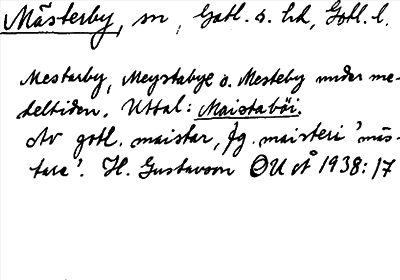 Mästerby, sn, Gotl. s. hd, Gotl. l.
Mestarby, Meystabye o. Mesteby under me-
deltiden. Uttal: Maistaböi.
Av gotl. maistar, fg. maisteri 'mäs-
tare'. H. Gustavson OUÅ 1938: 17